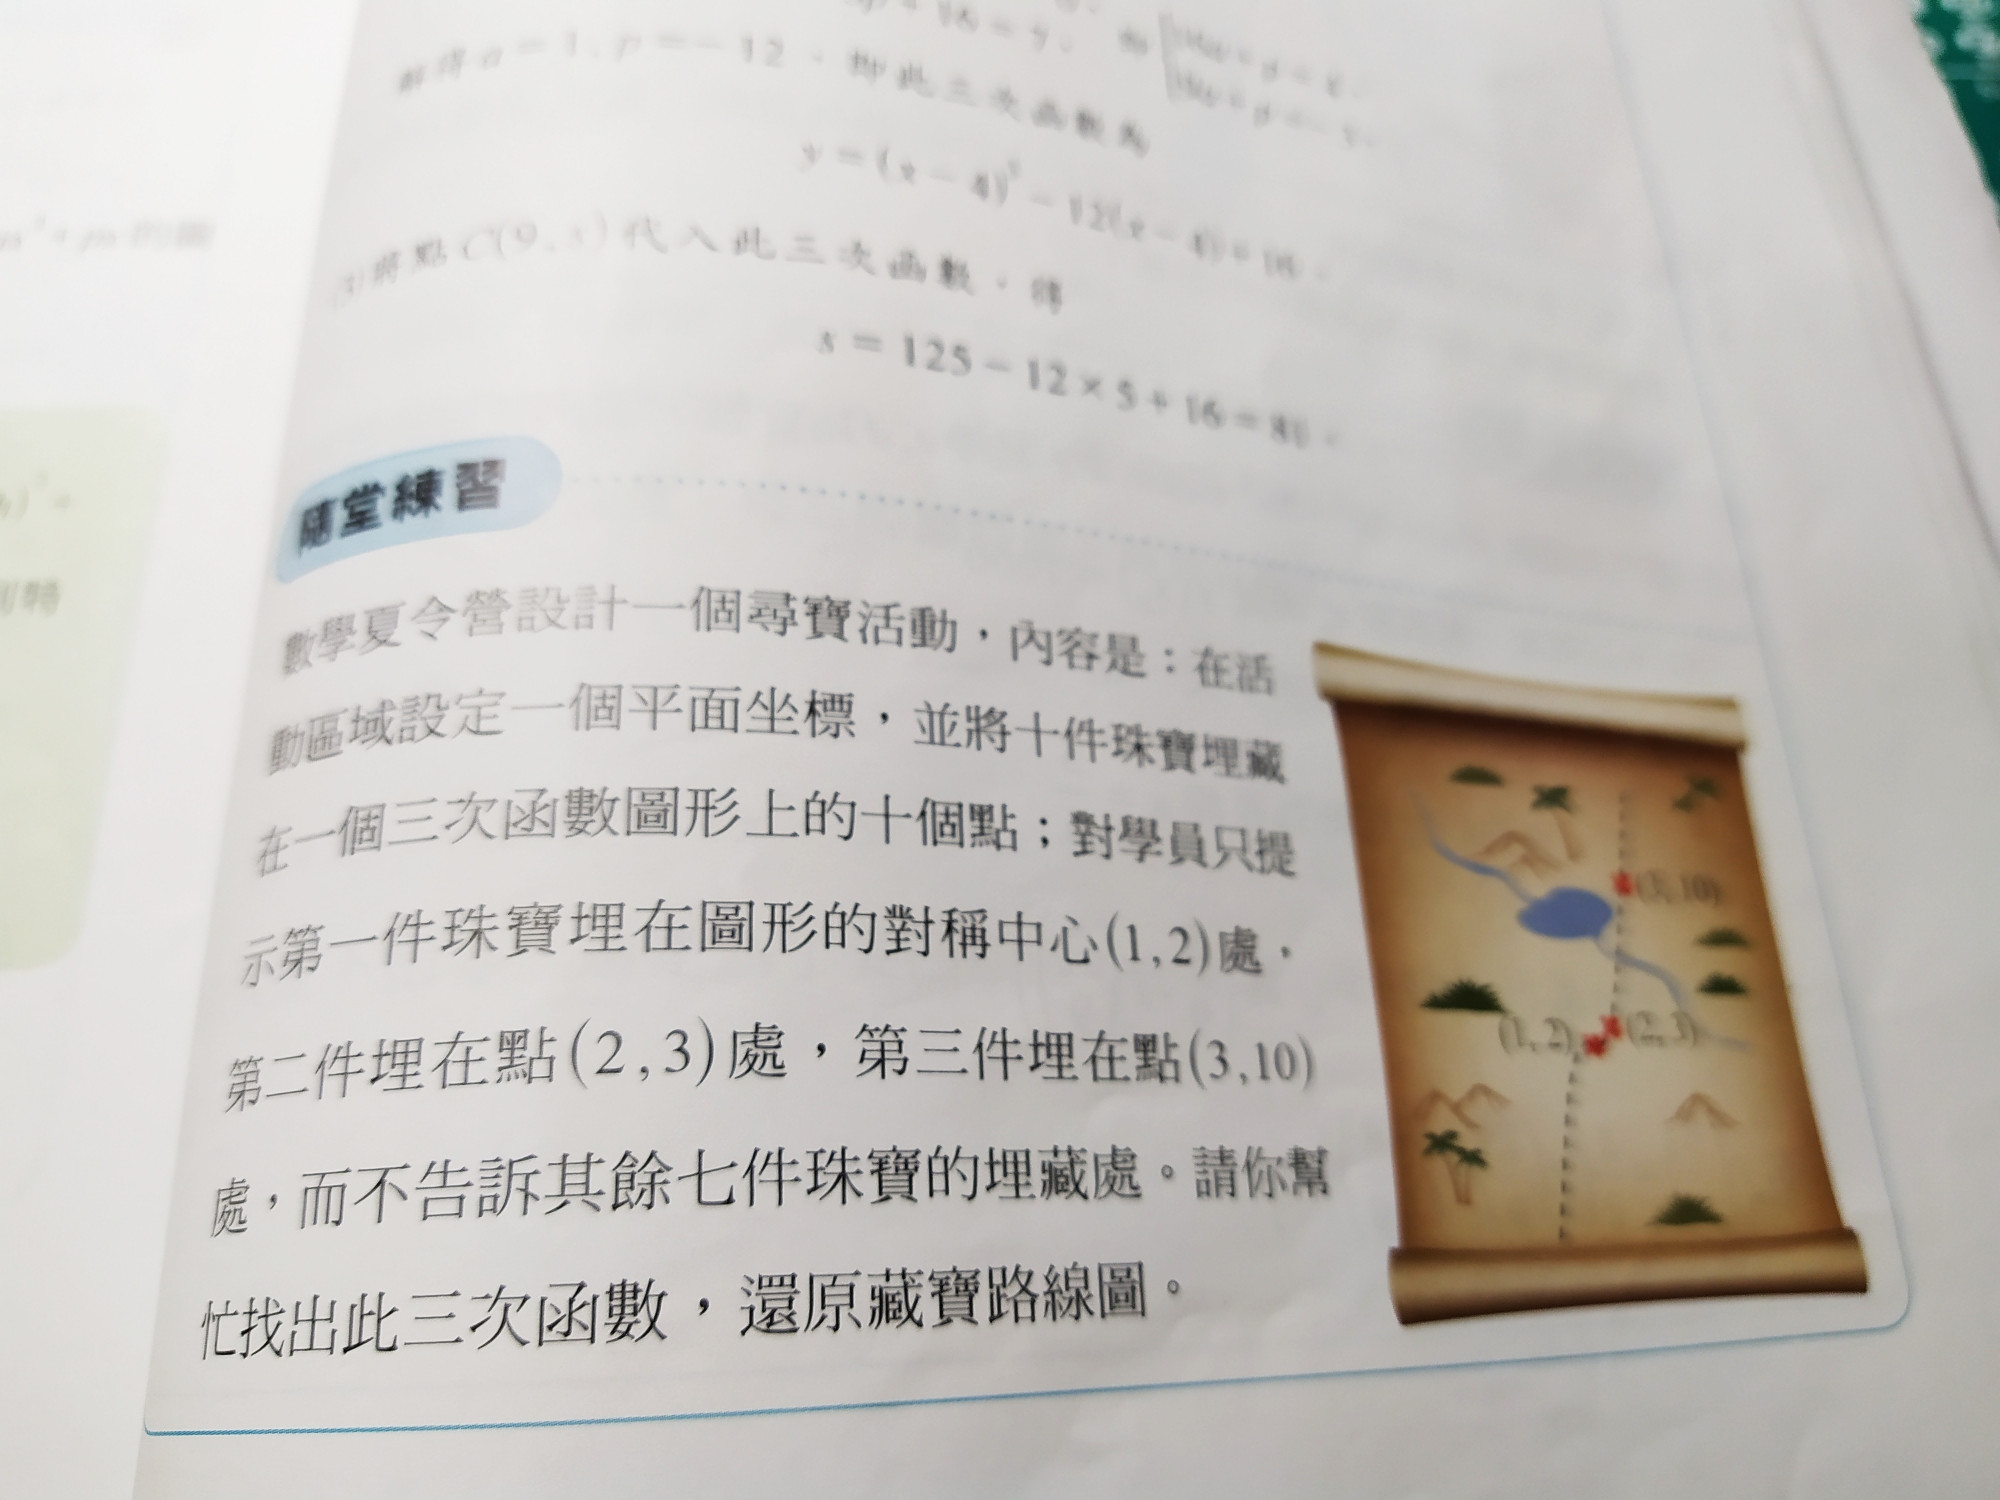 解得a=1,p=-12,即此三次函數為
y=(x-4)³-12(x-4)+16。
(3)將點C(9,s)代入此三次函數,得
s=125-12×5+16=81。
隨堂練習
數學夏令營設計一個尋寶活動,內容是:在活
動區域設定一個平面坐標,並將十件珠寶埋藏
在一個三次函數圖形上的十個點;對學員只提
示第一件珠寶埋在圖形的對稱中心(1,2)處,
第二件埋在點(2,3)處,第三件埋在點(3,10)
處,而不告訴其餘七件珠寶的埋藏處。請你幫
忙找出此三次函數,還原藏寶路線圖。
(3,10)
(1,2)
(2,3)